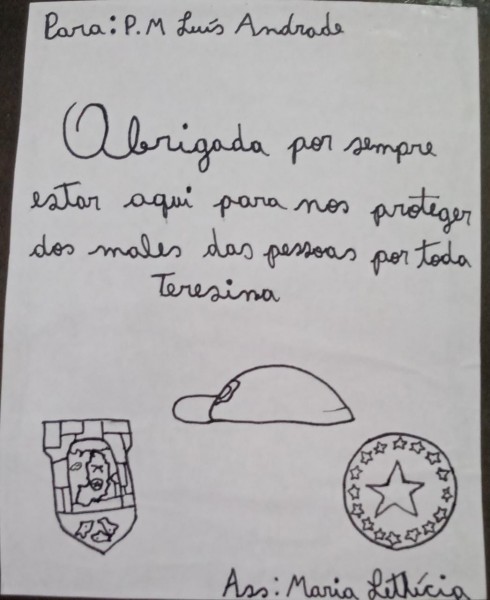 Para: P.M Luís Andrade
Obrigada por sempre
estar aqui para nos proteger
dos males das pessoas por toda
Teresina
Ass: Maria Lethícia